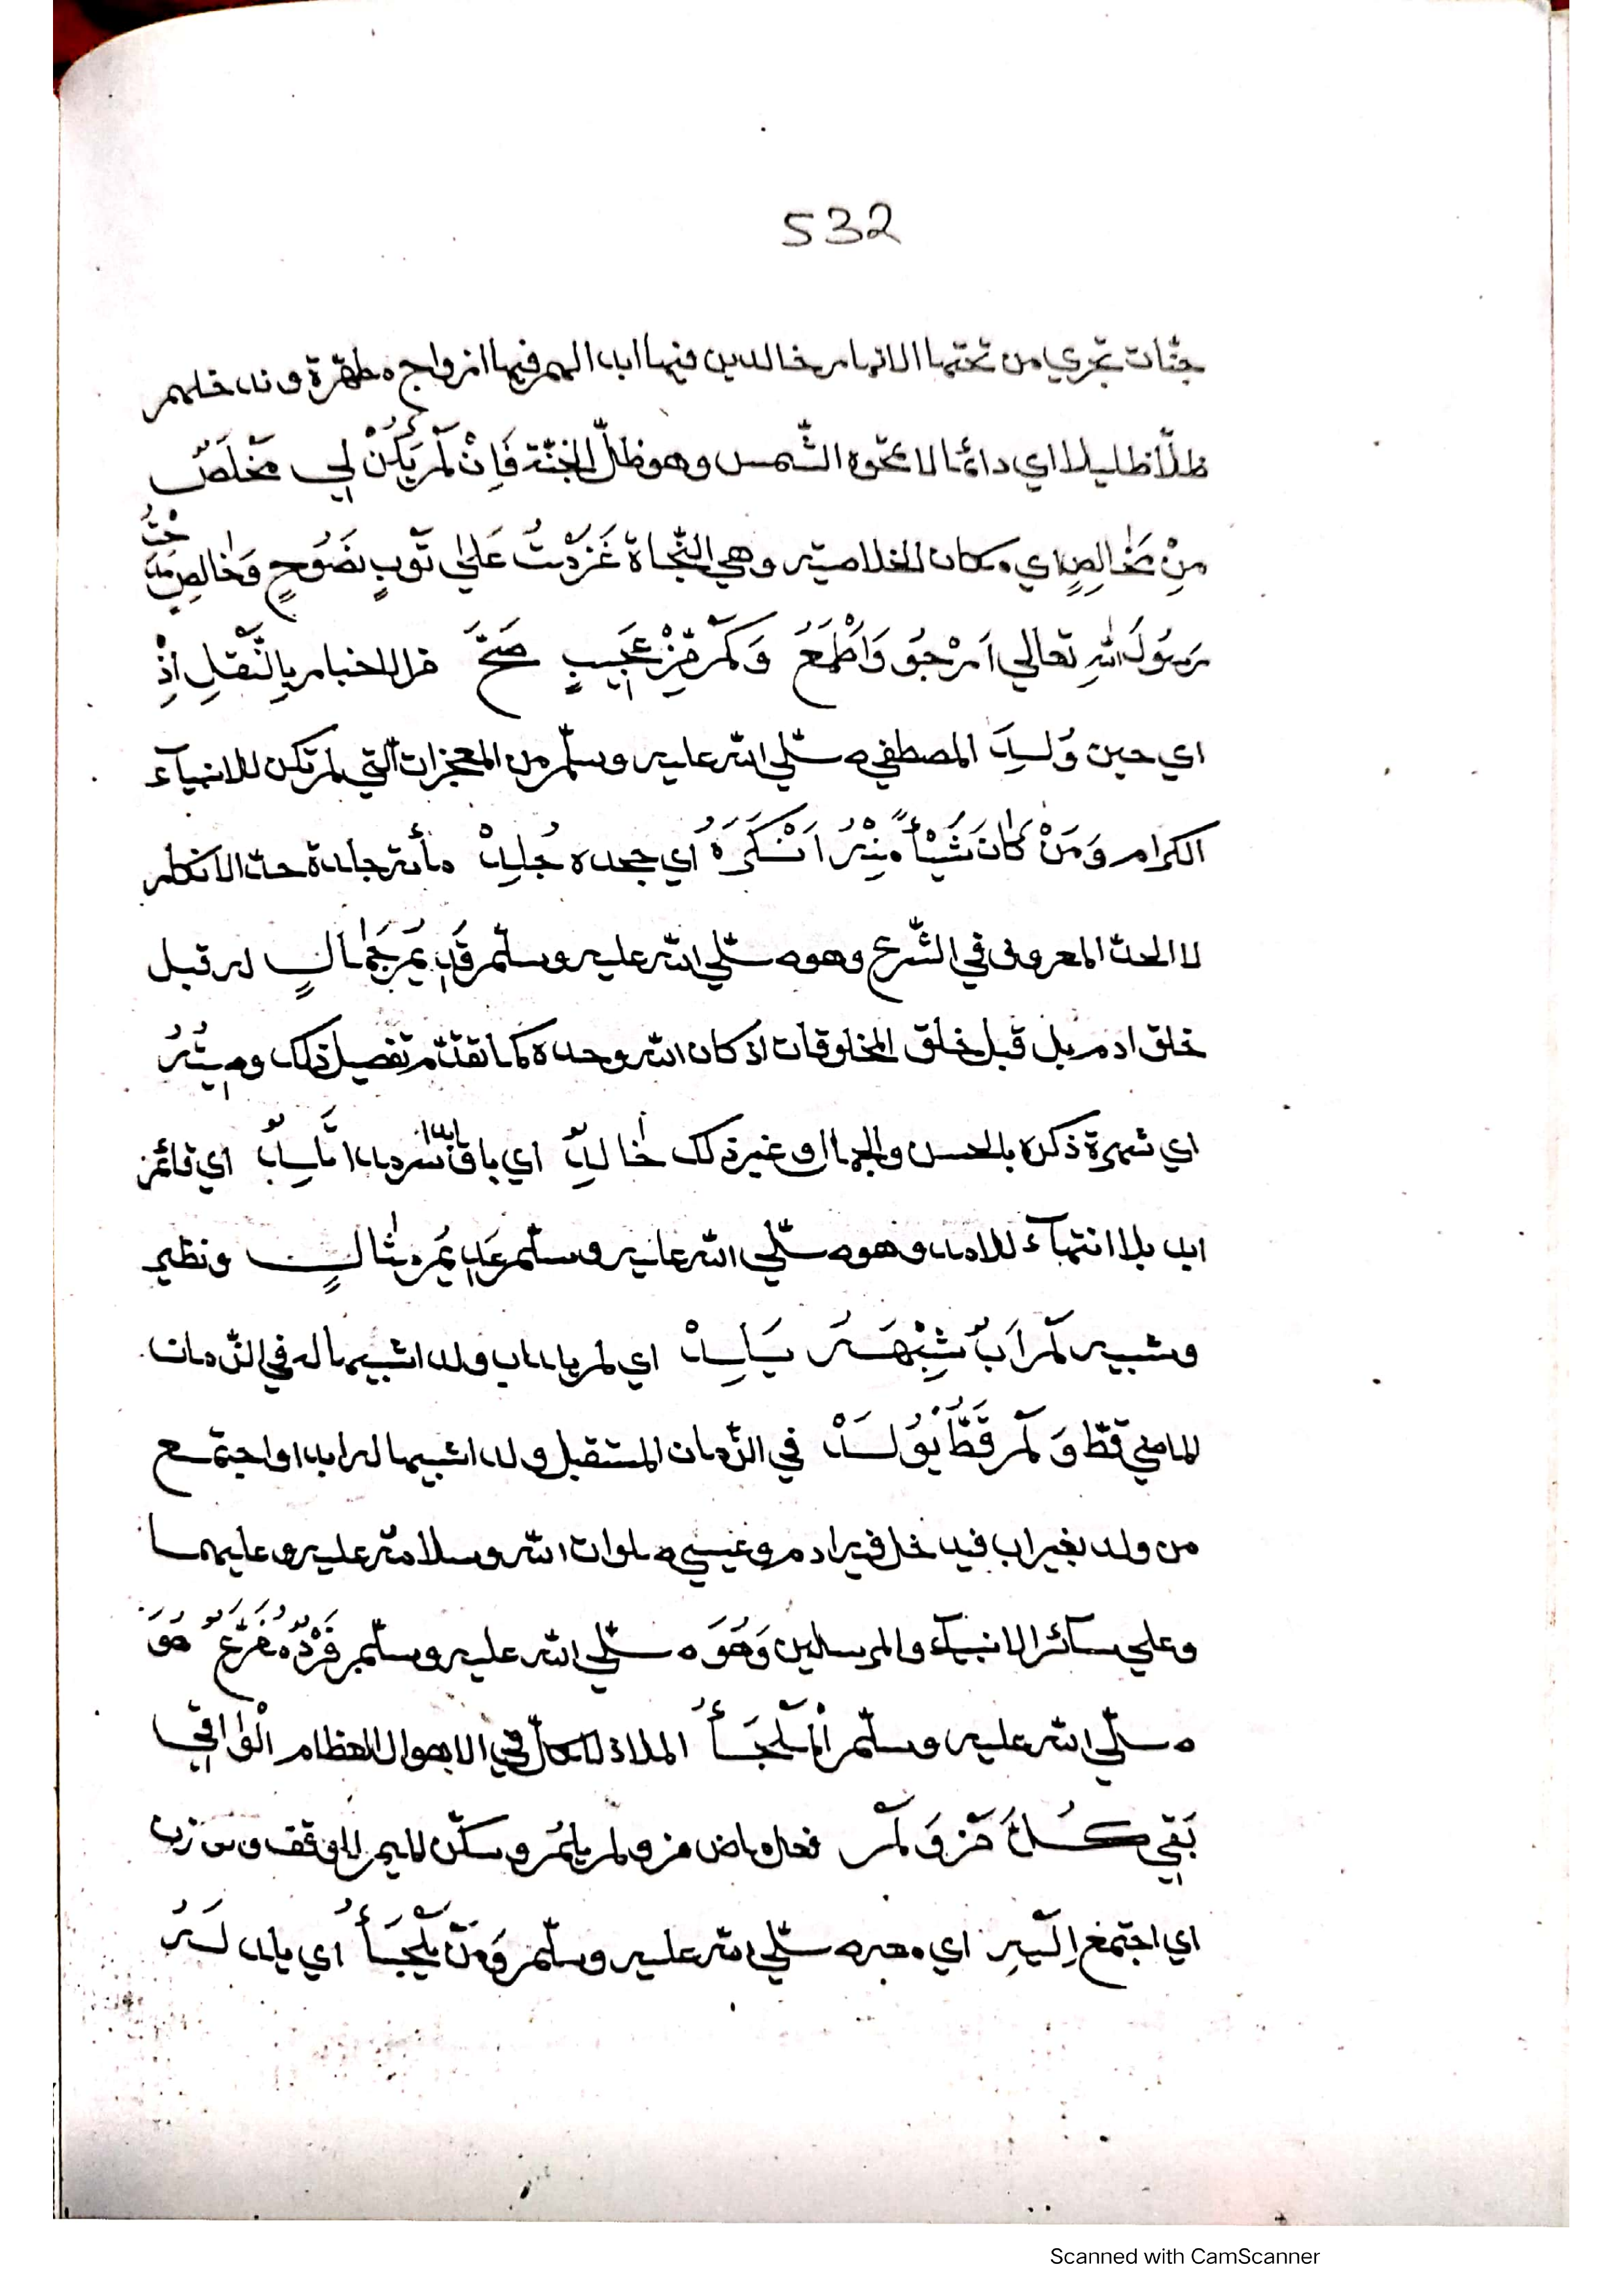 532
جنّات تجري من تحتها الانهار خالدين فيها ابدا لهم فيها ازواج مطهّرة وندخلهم
ظلّا ظليلا اي دائما لا تمحوه الشّمس وهو ظلّ الجنّة فَاِنْ لَمْ يَكُنْ لِي مَخْلَصٌ
مِنْ اي مكان الخلاصيّة وهي النّجاة عَلىٰ تَوْبٍ نَصُوحٍ وَخَالِصِ
رَسُولَ اللهِ تعالي اَرْجُو وَاَطْمَعُ وَكَمْ عَجِيبٍ صَحَّ الاخبار بِالنَّقْلِ اِذْ
اي حين وُلِدَ المصطفي صلّي الله عليه وسلّم من المعجزات الّتي لم تكن للانبياء
الكرام وَمَنْ كَانَ شَيْأً مِنْهُ اَنْكَرَهُ اي جحده جُلِدْ مأئة جلدة حدّ الانكار
لا الحدّ المعروف في الشّرع وهو صلّي الله عليه وسلّم قَدِيمُ جَمَالٍ له قبل
خلق ادم بل قبل خلق المخلوقات اذ كان الله وحده كما تقدّم تفصيل ذلك وصِيتُهُ
اي شهرة ذكره بالحسن والجمال وغير ذلك خَالِدٌ اي باق سرمدا اَبَدٌ اي قائم
ابد بلا انتهاء للامد وهو صلّي الله عليه وسلّم عَدِيمُ مِثَالٍ ونظير
وشبيه لَمْ اَبٌ شِبْهَهُ يَلِدْ اي لم يلد اب ولدا شبيها له في الزّمان
الماضي قطّ وَلَمْ قَطُّ يُولَدْ في الزّمان المستقبل ولدا شبيها له ابدا واجتمع
من ولد بغير اب فيدخل فيه ادم وعيسي صلوات الله وسلامه عليه وعليهما
وعلي سائر الانبياء والمرسلين وَهُوَ صلّي الله عليه وسلّم فَرْدٌ مُفَرَّعٌ هُوَ
صلّي الله عليه وسلّم اَلْمَلْجَأُ الملاذ للكلّ في الاهوال العظام اَلْوَاقِي
بَقِي كُلَّ مَنْ وَلَمْ فعل ماض من ولم يلم وسكّن الميم للوقف
اي اجتمع اِلَيْهِ اي صلّي الله عليه وسلّم وَمَنْ يَلْجَأُ اي يلد لَهُ
Scanned with CamScanner